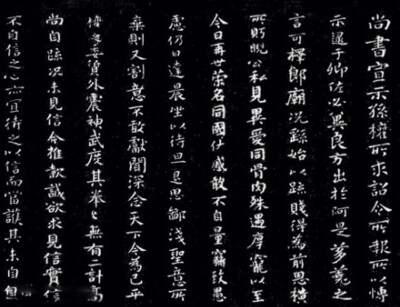 尚書宣示孫權所求詔令所報所以博
示逮于卿佐必冀良方出於阿是芻蕘之
言可擇郎廟況繇始以疏賤得為前恩橫
所盱睨公私見異愛同骨肉殊遇厚寵以至
今日再世榮名同國休慼敢不自量竊致愚
慮仍日達晨坐以待旦退思鄙淺聖意所
棄則又割意不敢獻聞深念天下今為已平
權之委質外震神武度其拳拳無有二計高
尚自疏況未見信今推款誠欲求見信實
不自信之心亦宜待之以信而當護其未自信